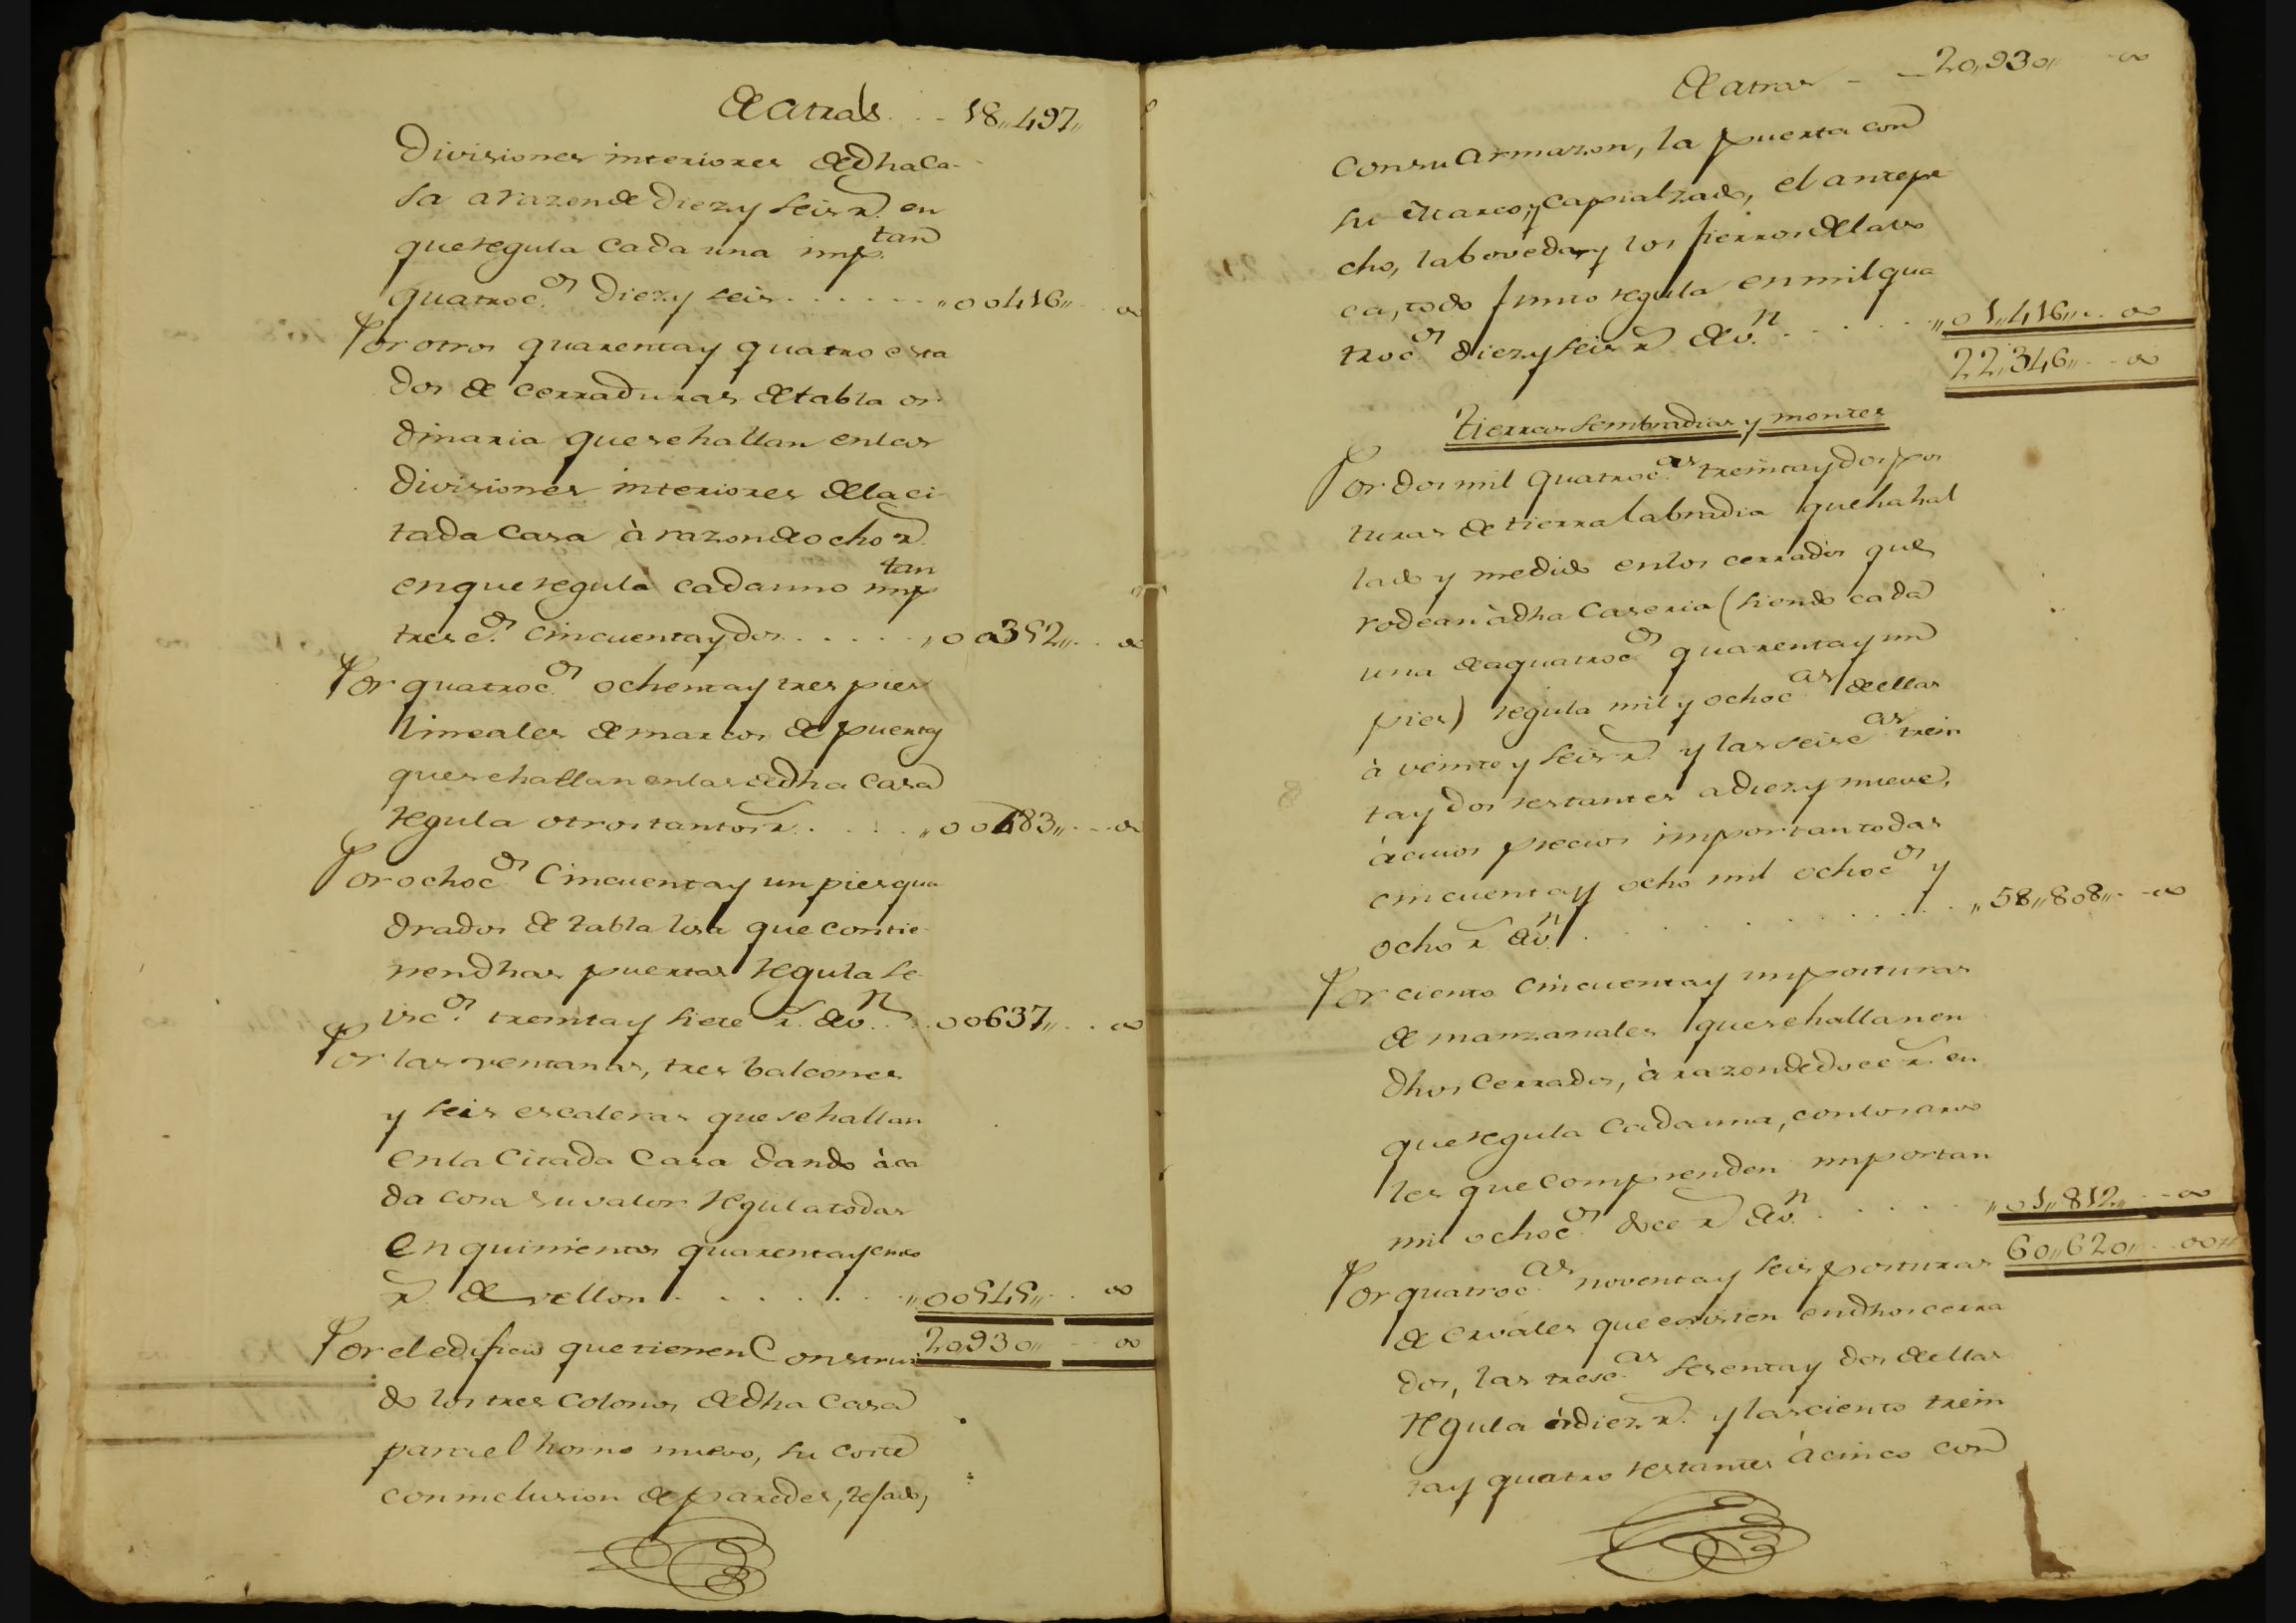 De atras . . - 18,,497,,
Divisiones interiores de dha Ca-
sa a razon de Diez y seis rs. en
que regula cada una imp.tan
quatroc.os Diez y seis . . . . . . ,,00416,, . . 00
Por otros quarenta y quatro esta
dos de cerraduras de tabla or-
dinaria que se hallan en las
divisiones interiores de la ci-
tada Casa à razon de ocho rs.
en que regula cada uno imp.tan
tresc.os cincuenta y dos . . . . . ,,00352,, . . 00
Por quatroc.os ochenta y tres pies
lineales de marcos de puertas
que se hallan en las de dha Casa
regula otros tantos rs. . . . . ,,00483,, . . 00
Por ochoc.os Cincuenta y un pies qua
drados de tabla losa que contie-
nen dhas puertas regula se-
isc.os treinta y siete rs. de v.n . . ,,00637,, . . 00
Por las ventanas, tres balcones
y seis escaleras que se hallan
en la Citada Casa dando à ca
da cosa su valor regula todas
en quinientos quarenta y cinco
rs. de vellon . . . . . . ,,00545,, . . 00
20930,, - - 00
Por el edificio que tienen Construi
do los tres Colonos de dha Casa
para el horno nuevo, su coste
con inclusion de paredes, tejado,
De atras - - 20,,930,, - 00
con su armazon, la puerta con
su Marco, y capialzado, el antepe
cho, la boveda y los fierros de la vo
ca, todo junto regula en mil qua
troc.os diez y seis rs de v.n . . . . . ,,01,,416,, . . 00
22,346,, - - 00
Tierras sembradias y montes
Por dos mil quatroc.as treinta y dos pos
turas de tierra labradia que ha hal
lado y medido en los cerrados que
rodean à dha Caseria (siendo cada
una de a quatroc.os quarenta y un
pies) regula mil y ochoc.as de ellas
à veinte y seis rs. y las seisc.as trein
ta y dos restantes a diez y nueve,
à cuios precios importan todas
cincuenta y ocho mil ochoc.os y
ocho rs de v.n . . . . . . . . ,,58,,808,, - 00
Por ciento cincuenta y un posturas
de manzanales que se hallan en
dhos Cerrados, à razon de doce rs en
que regula cada una, con los arvo
les que comprenden importan
mil ochoc.os doce rs de v.n . . . . . ,,01,,812,, - - 00
60,,620,, . . 00
Por quatroc.as noventa y seis posturas
de ervales que existen en dhos cerra
dos, las tresc.as sesenta y dos de ellas
regula à diez rs. y las ciento trein
ta y quatro restantes à cinco con